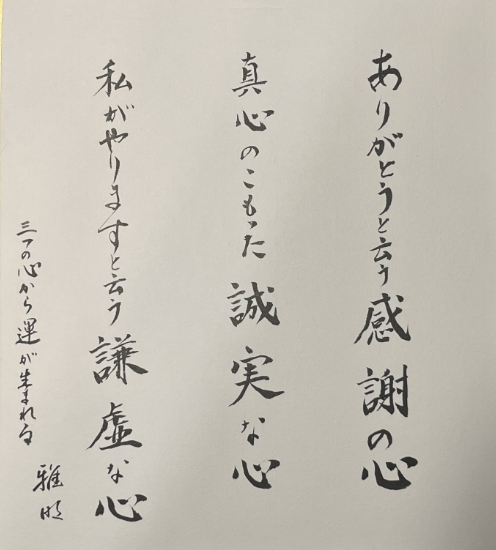 ありがとうと云う感謝の心
真心のこもった誠実な心
私がやりますと云う謙虚な心
三つの心から運が生まれる
雅明